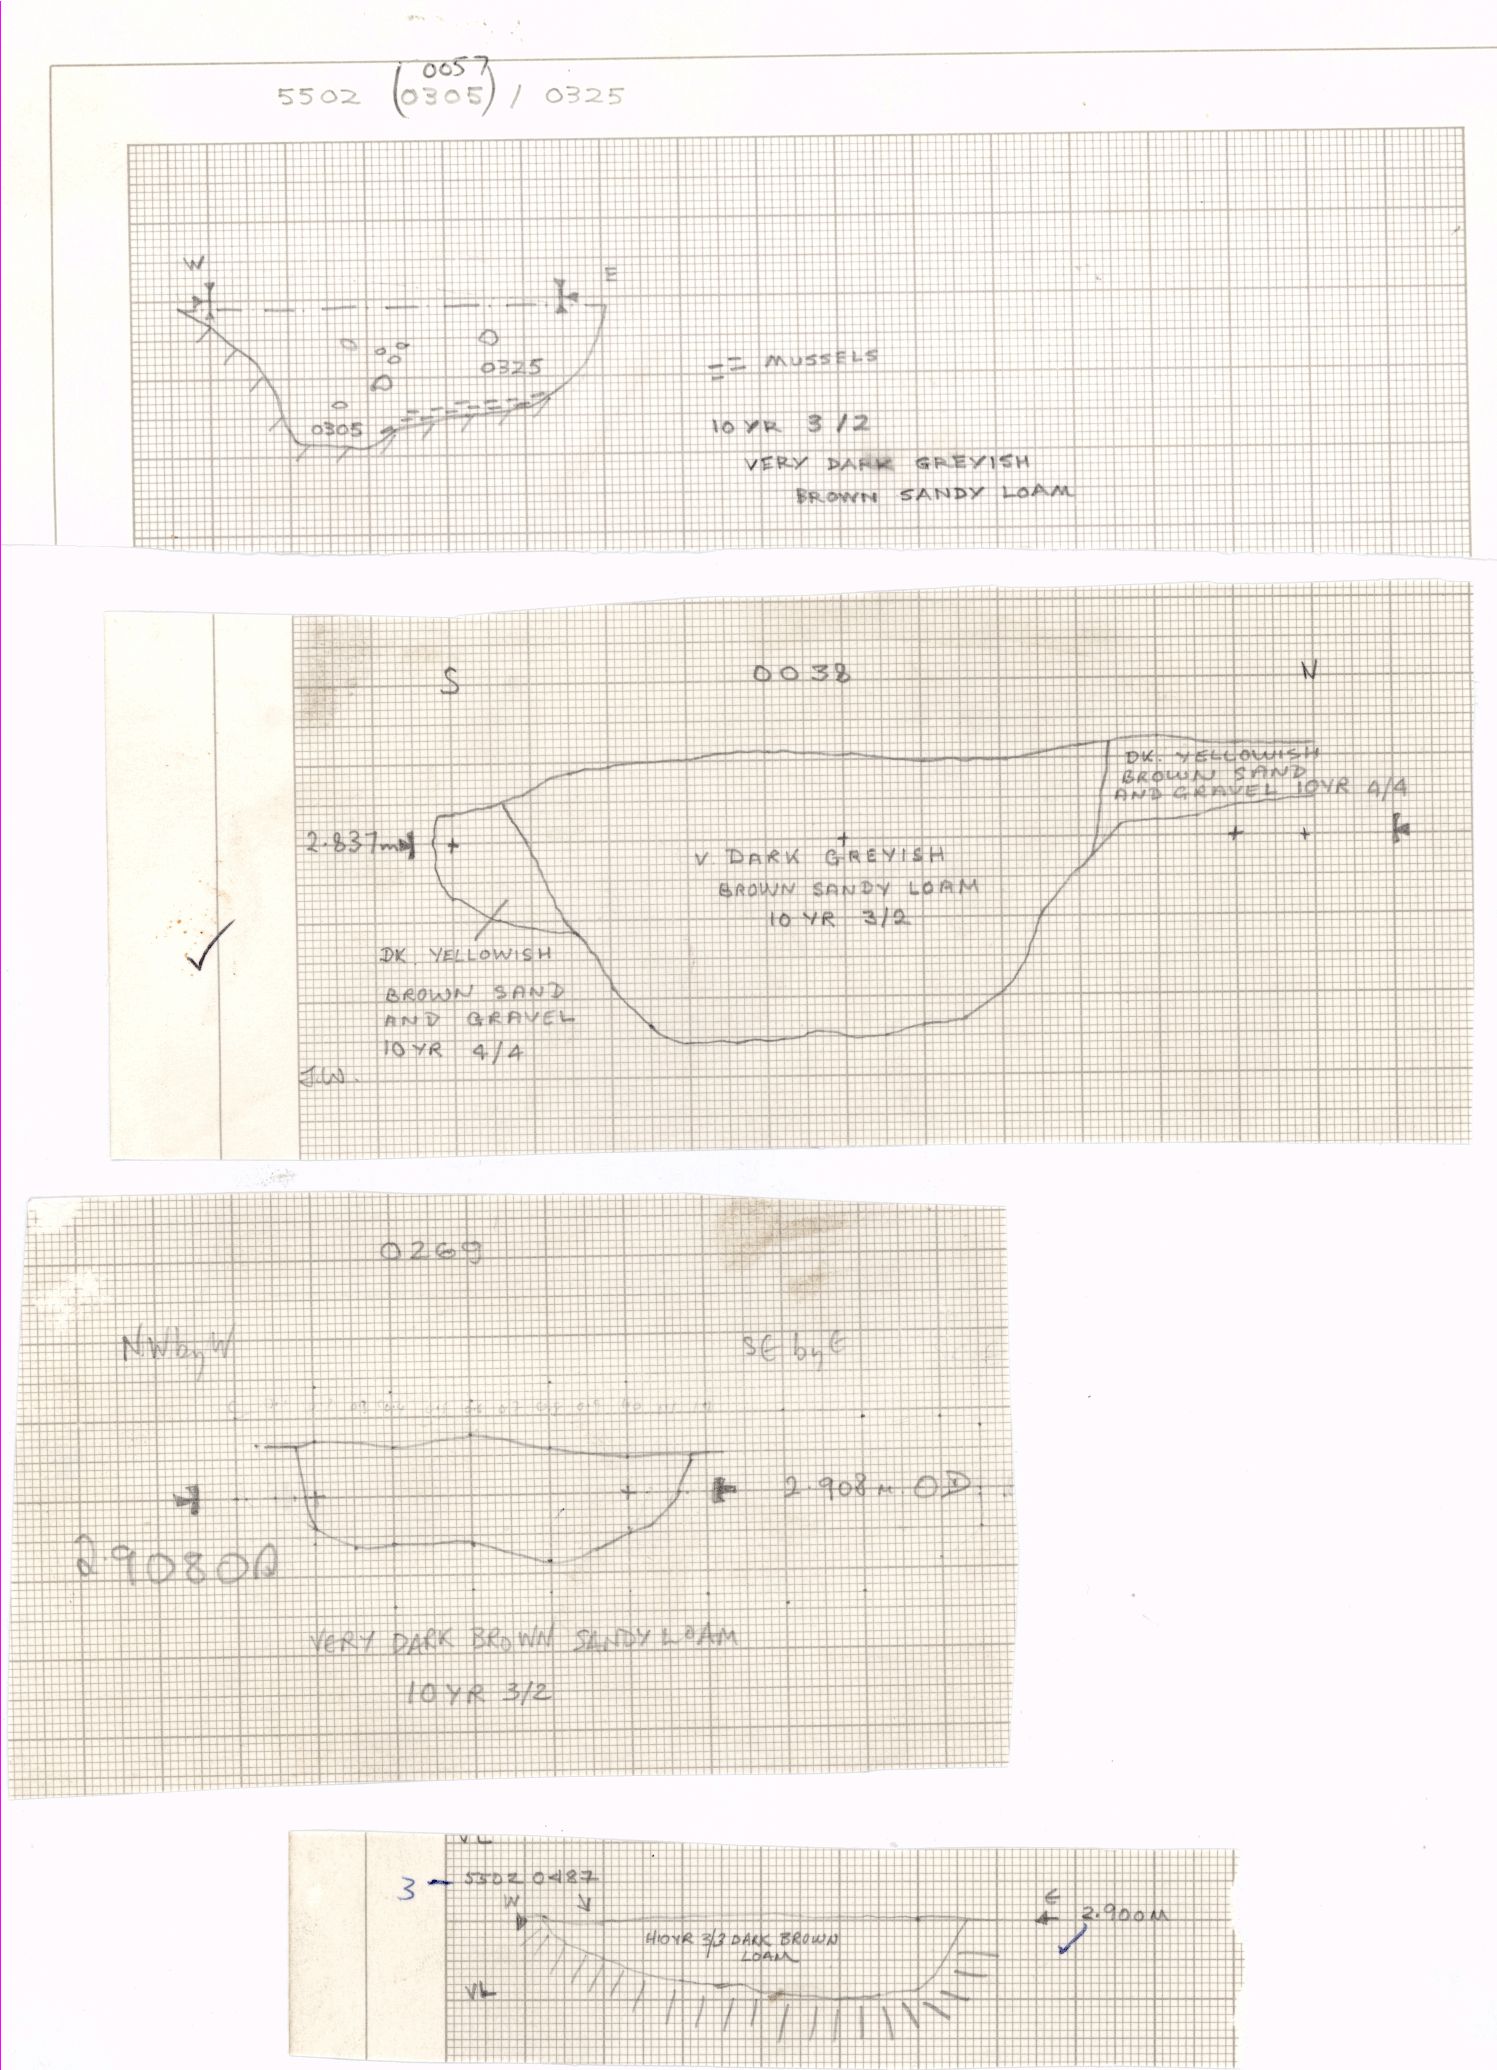 0057
5502 (0305) / 0325
W
E
0325
0305
MUSSELS
10 YR 3/2
VERY DARK GREYISH
BROWN SANDY LOAM
S 0038 N
DK. YELLOWISH
BROWN SAND
AND GRAVEL 10YR 4/4
2.837m
V. DARK GREYISH
BROWN SANDY LOAM
10 YR 3/2
DK. YELLOWISH
BROWN SAND
AND GRAVEL
10 YR 4/4
J.W.
0269
NW by W
SE by E
2.908 M. OD
2.908 OD
VERY DARK BROWN SANDY LOAM
10 YR 3/2
VL
3 - 5502 0487
W
E
2.900M
10YR 3/3 DARK BROWN
LOAM
VL